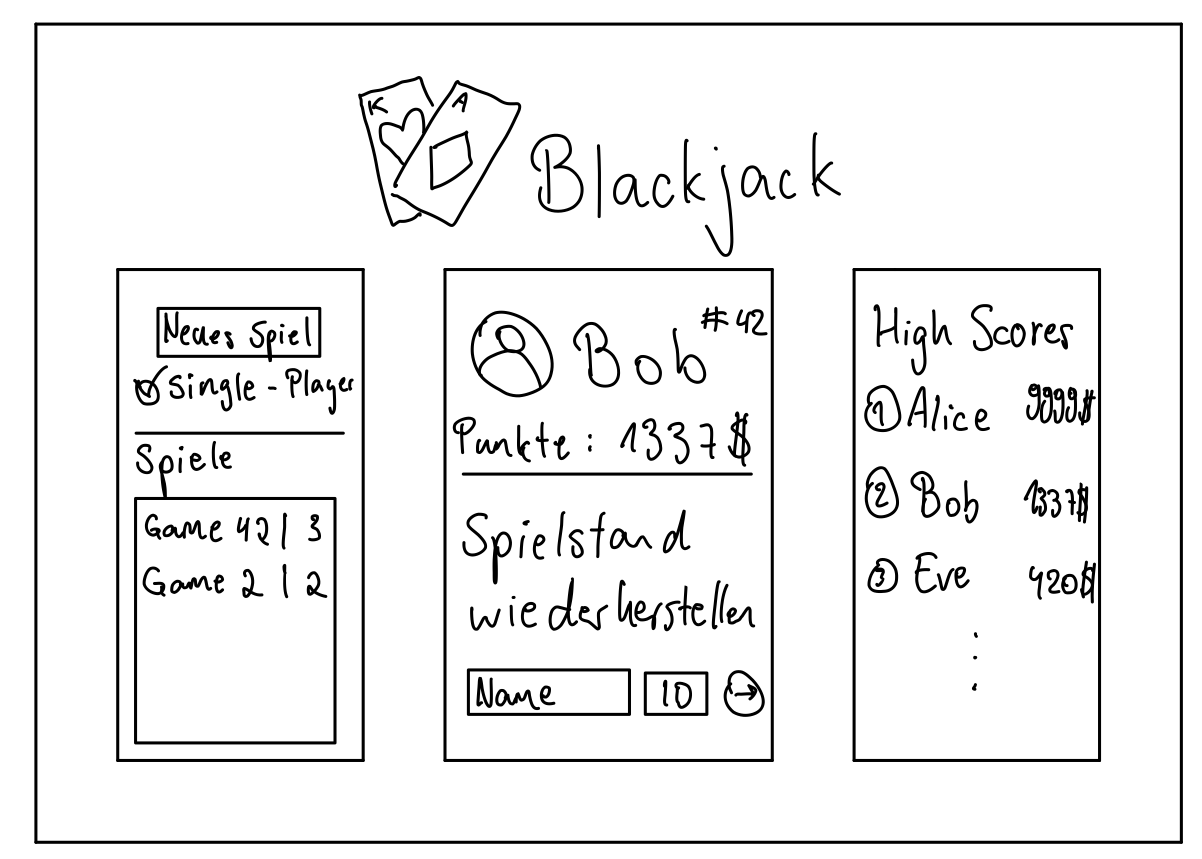 K A
Blackjack
Neues Spiel
Single-Player
Spiele
Game 42 | 3
Game 2 | 2
Bob #42
Punkte: 1337$
Spielstand
wiederherstellen
Name 10 →
High Scores
1 Alice 9999$
2 Bob 1337$
3 Eve 420$
⋮